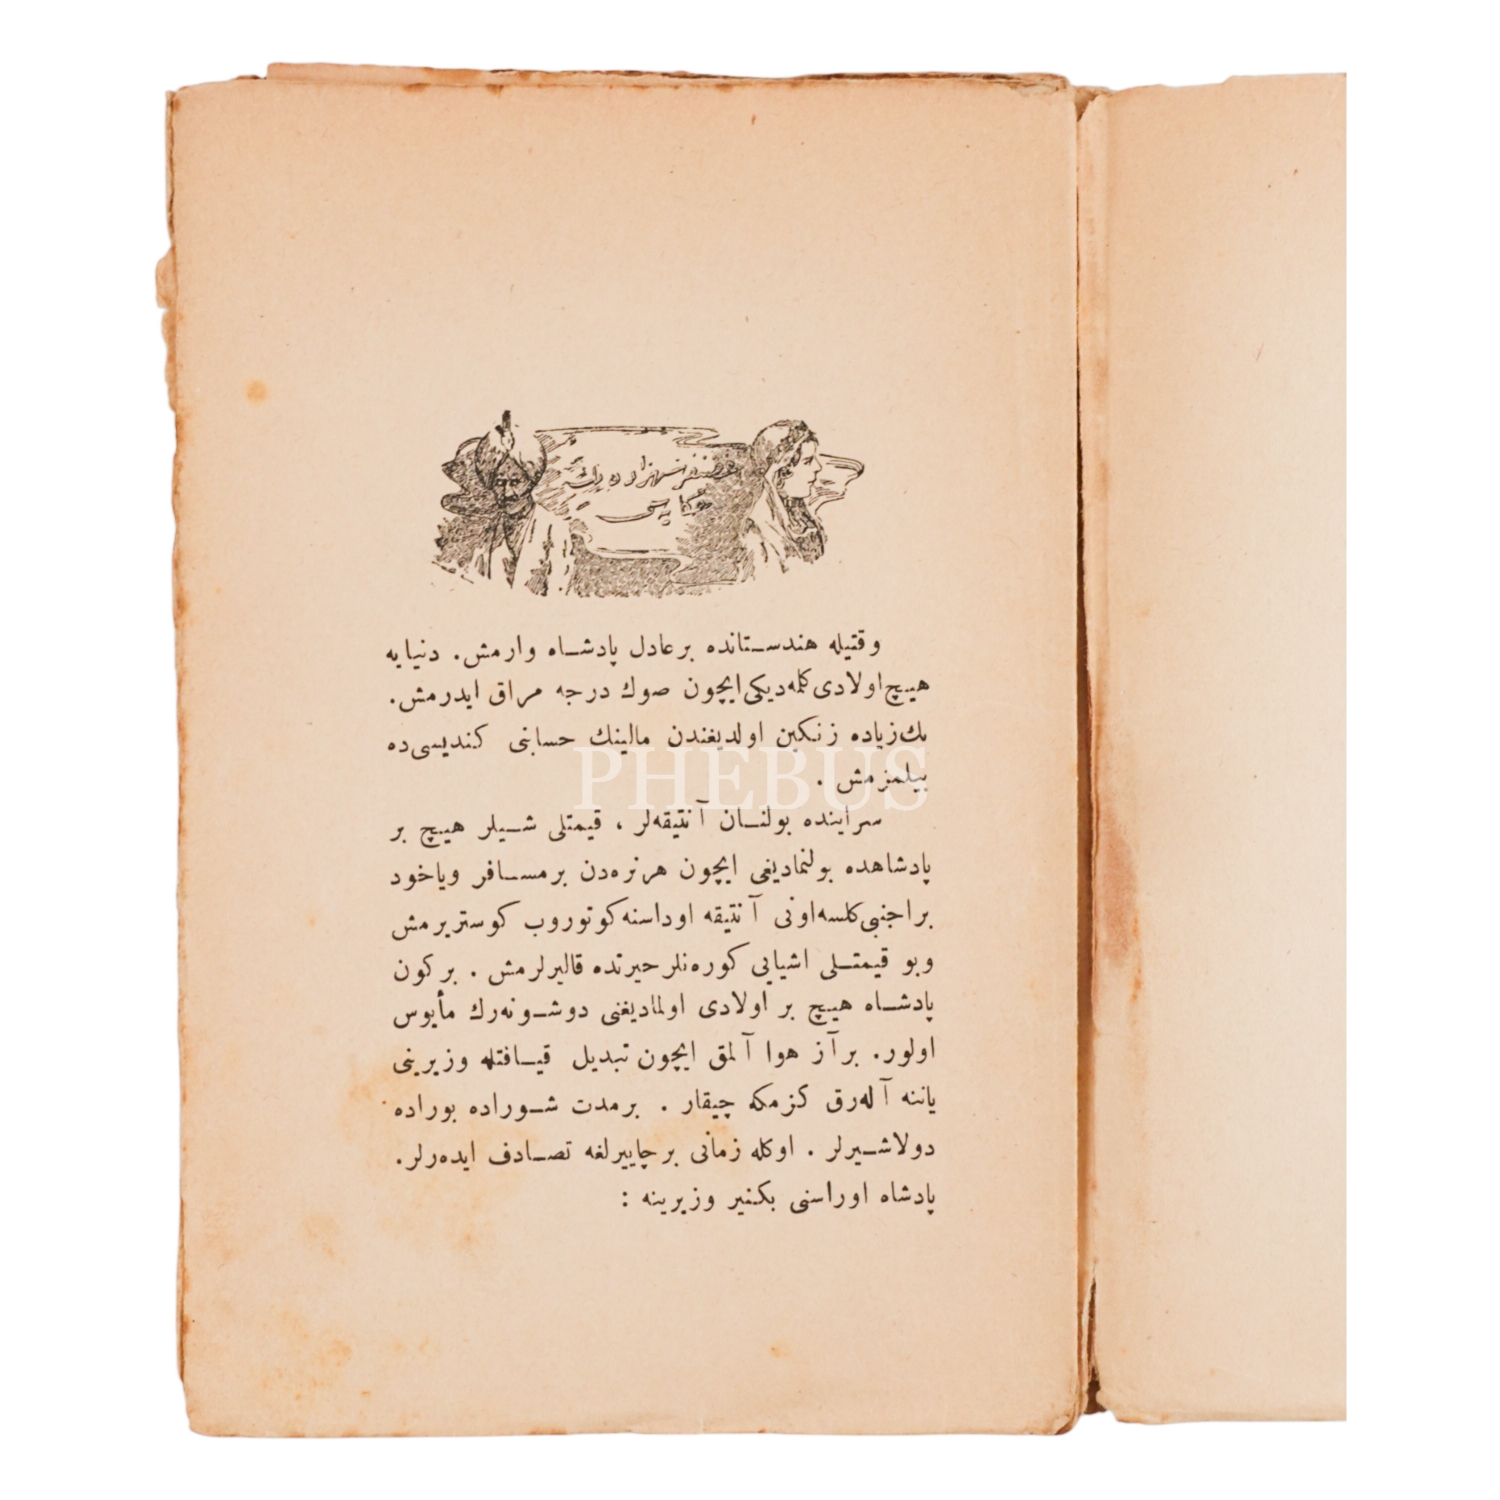 غضنفر شهزاده ايله راشد
حكايه سى
وقتيله هندستانده بر عادل پادشاه وارمش. دنيايه
هيچ اولادى كلمه‌ديكى ايچون صوك درجه مراق ايدرمش.
پك زياده زنكين اولديغندن مالينك حسابنى كنديسى ده
بيلمزمش .
سراينده بولنان آنتيقه‌لر ، قيمتلى شيلر هيچ بر
پادشاهده بولنماديغى ايچون هر نره‌دن بر مسافر وياخود
بر اجنبى كلسه اونى آنتيقه اوداسنه كوتوروب كوستريرمش
وبو قيمتلى اشيايى كوره‌نلر حيرتده قاليرلرمش . بر كون
پادشاه هيچ بر اولادى اولماديغنى دوشونه‌رك مأيوس
اولور. بر آز هوا آلمق ايچون تبديل قيافتله وزيرينى
ياننه آله‌رق كزمكه چيقار . بر مدت شوراده بوراده
دولاشيرلر . اوكله زمانى بر چاييرلغه تصادف ايده‌رلر.
پادشاه اوراسنى بكنير وزيرينه :
PHEBUS